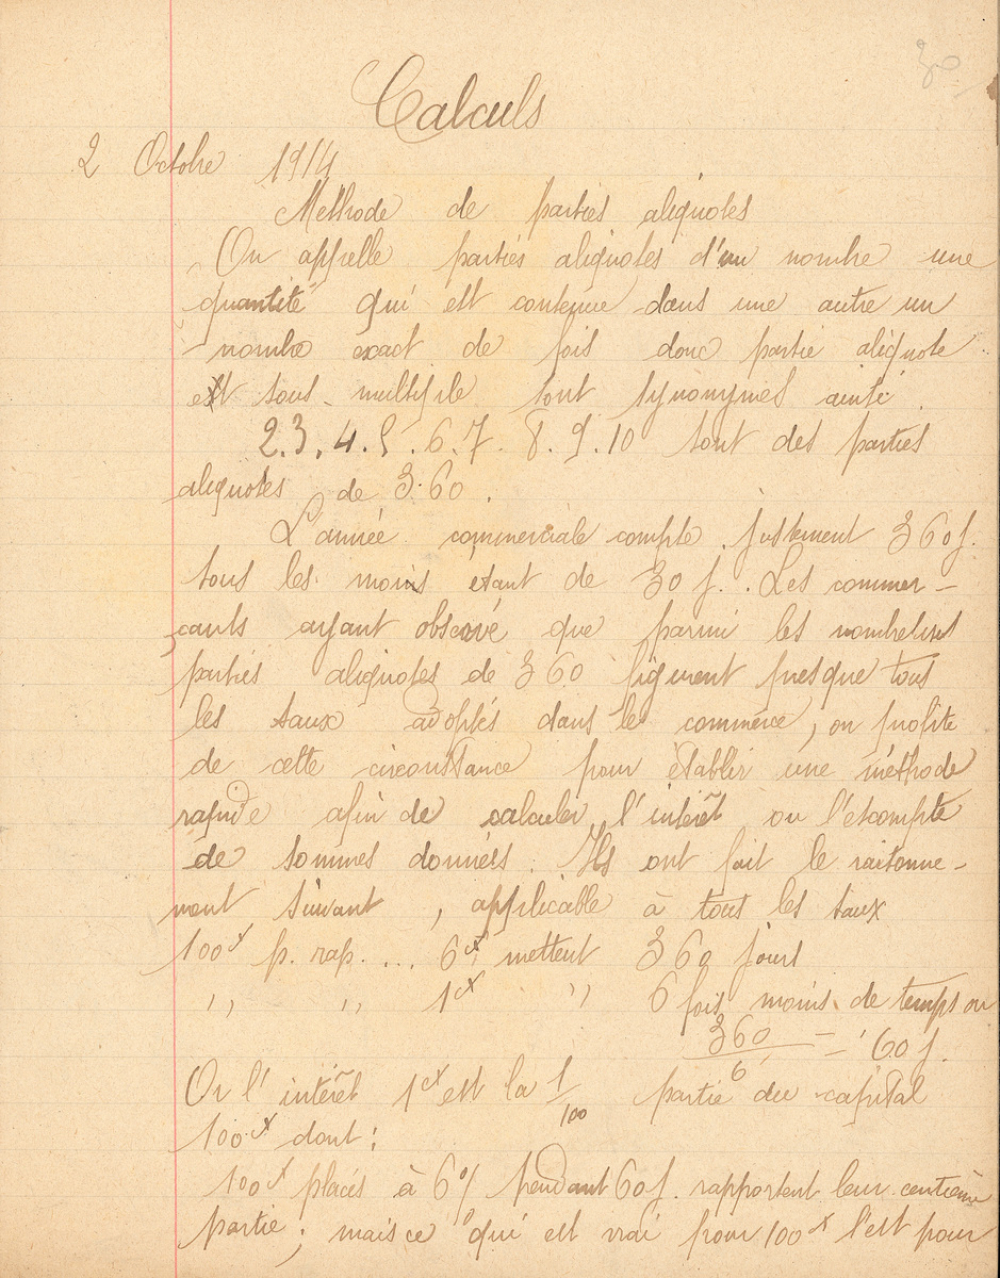 30
Calculs
2 Octobre 1914
Methode de parties aliquotes
On appelle parties aliquotes d'un nombre une
quantité qui est contenue dans une autre un
nombre exact de fois donc partie aliquote
est sous-multiple sont synonymes ainsi
2.3.4.5.6.7.8.9.10 sont des parties
aliquotes de 3.60.
L'année commerciale compte justement 360 j.
tous les mois étant de 30 j. Les commer-
çants ayant observé que parmi les nombreuses
parties aliquotes de 360 figurent presque tous
les taux adoptés dans le commerce, on profite
de cette circonstance pour établir une méthode
rapide afin de calculer l'intérêt ou l'escompte
de sommes données. Ils ont fait le raisonne-
ment suivant, applicable à tous les taux
100 p. rap. ... 6 mettent 360 jours
" " 1 " 6 fois moins de temps ou
360/6 = 60 j.
Or l'intérêt 1 est la 1/100 partie du capital
100 dont :
100 placés à 6% pendant 60 j. rapportent leur centième
partie ; mais ce qui est vrai pour 100 l'est pour